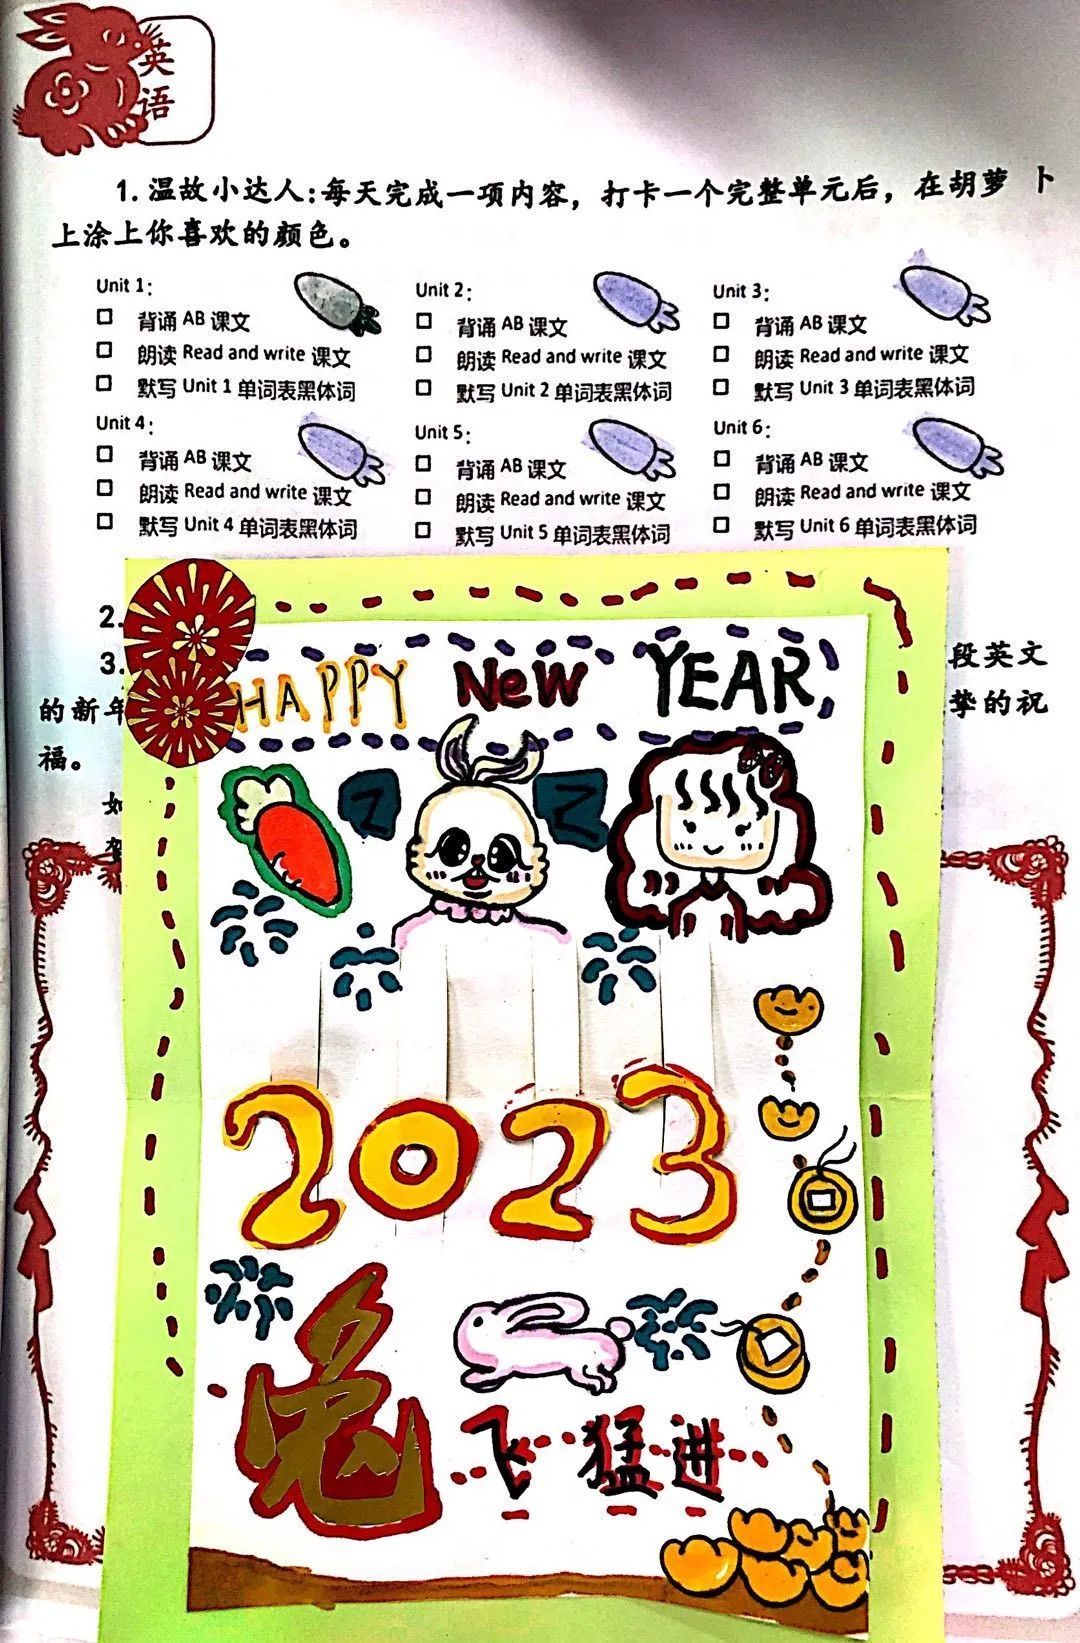 英
语
1. 温故小达人:每天完成一项内容，打卡一个完整单元后，在胡萝 卜
上涂上你喜欢的颜色。
Unit 1:
背诵 AB 课文
朗读 Read and write 课文
默写 Unit 1 单词表黑体词
Unit 2:
背诵 AB 课文
朗读 Read and write 课文
默写 Unit 2 单词表黑体词
Unit 3:
背诵 AB 课文
朗读 Read and write 课文
默写 Unit 3 单词表黑体词
Unit 4:
背诵 AB 课文
朗读 Read and write 课文
默写 Unit 4 单词表黑体词
Unit 5:
背诵 AB 课文
朗读 Read and write 课文
默写 Unit 5 单词表黑体词
Unit 6:
背诵 AB 课文
朗读 Read and write 课文
默写 Unit 6 单词表黑体词
2.
3. 段英文
的新年 挚的祝
福。
HAPPY NeW YEAR
2023
兔
飞猛进